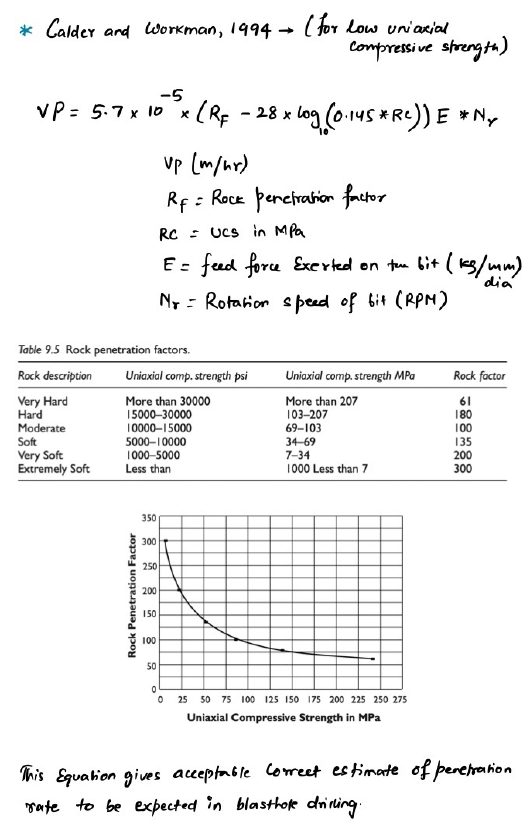 * Calder and Workman, 1994 → (for low uniaxial
compressive strength)
VP = 5.7 x 10^-5 x (RF - 28 x log10 (0.145 * Rc)) E * Nr
Vp (m/hr)
RF = Rock penetration factor
RC = UCS in MPa
E = feed force Exerted on the bit (kg/mm)
dia
Nr = Rotation speed of bit (RPM)
Table 9.5 Rock penetration factors.
Rock description Uniaxial comp. strength psi Uniaxial comp. strength MPa Rock factor
Very Hard More than 30000 More than 207 61
Hard 15000–30000 103–207 180
Moderate 10000–15000 69–103 100
Soft 5000–10000 34–69 135
Very Soft 1000–5000 7–34 200
Extremely Soft Less than 1000 Less than 7 300
Rock Penetration Factor
350
300
250
200
150
100
50
0
0 25 50 75 100 125 150 175 200 225 250 275
Uniaxial Compressive Strength in MPa
This Equation gives acceptable correct estimate of penetration
rate to be expected in blasthole drilling.